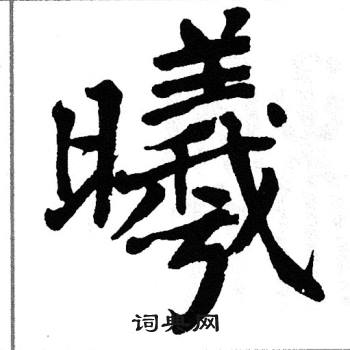 曦
词典网